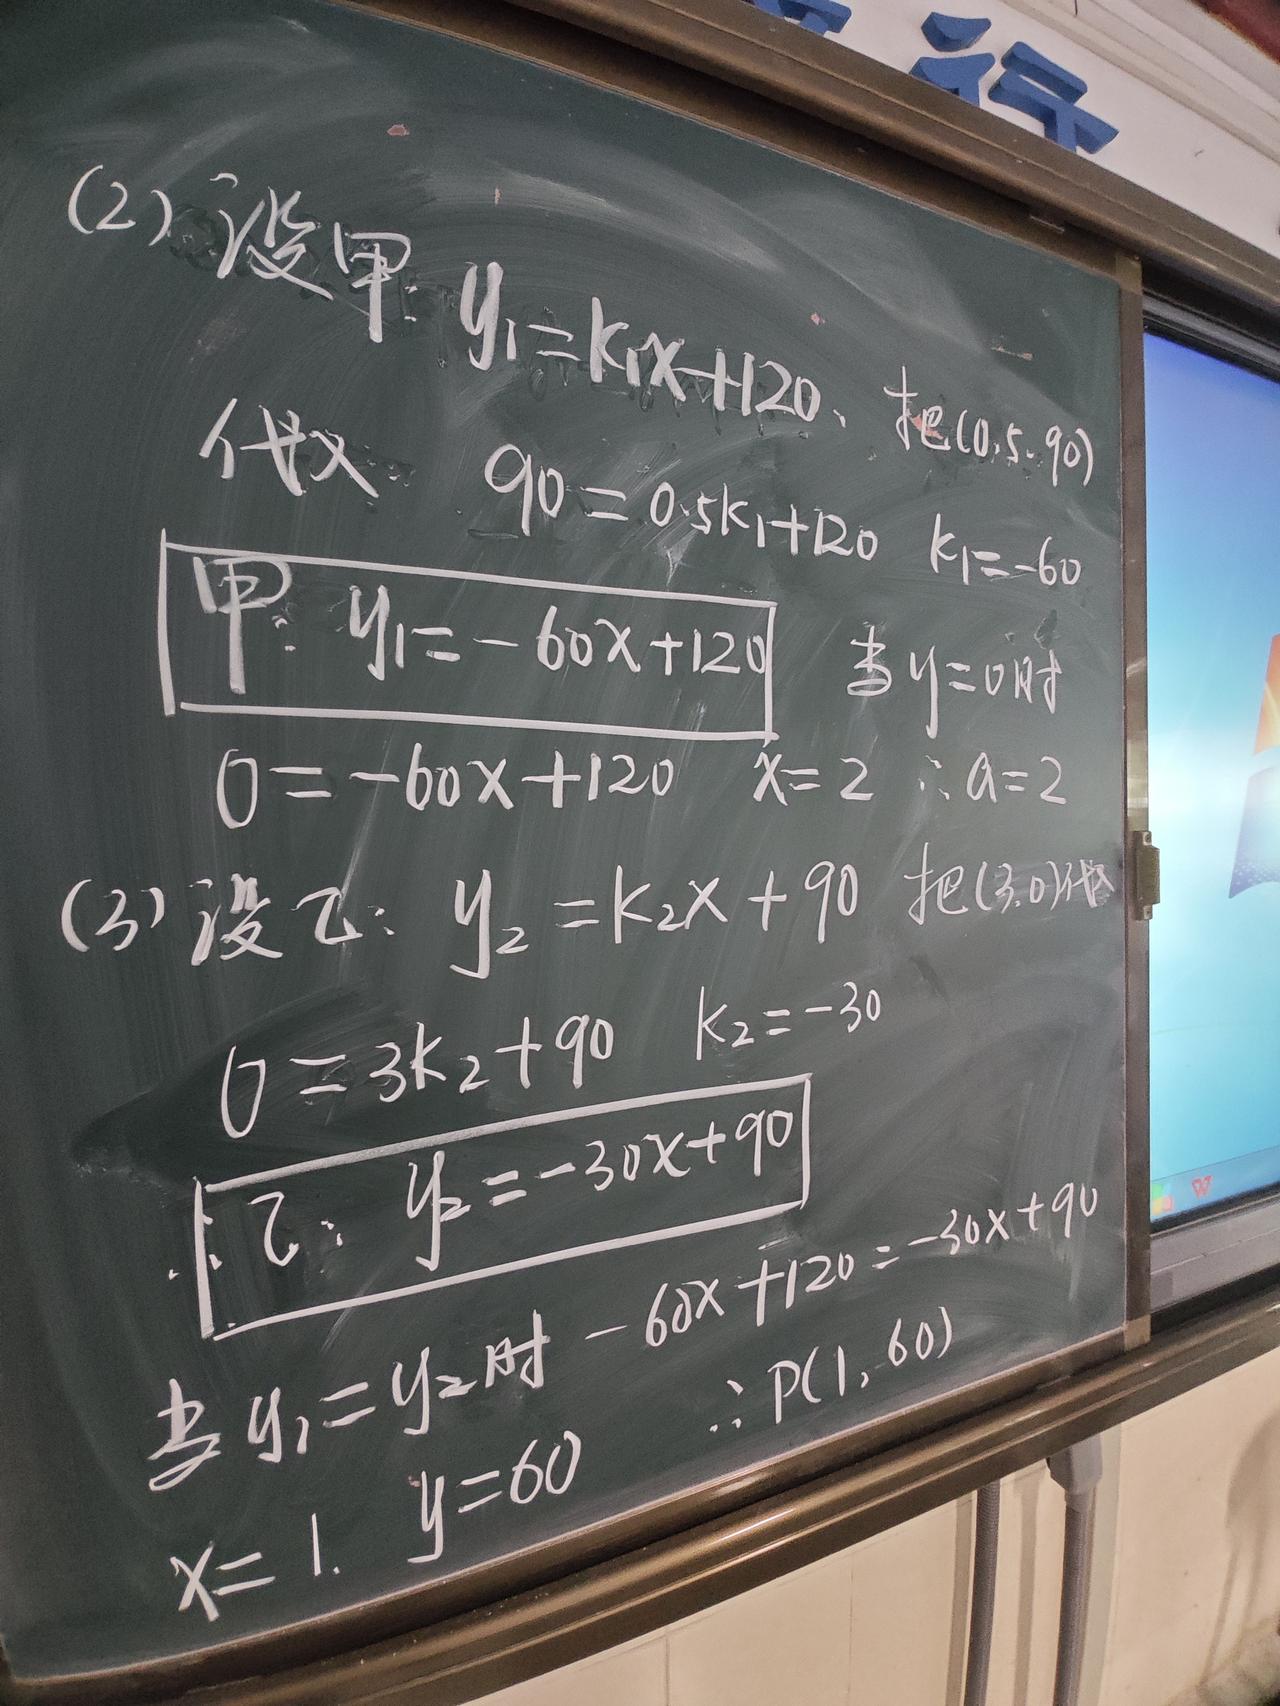 行
(2) 设甲: y₁=k₁x+120, 把(0.5, 90)
代入 90=0.5k₁+120 k₁=-60
甲: y₁=-60x+120 当y=0时
0=-60x+120 x=2 ∴a=2
(3) 设乙: y₂=k₂x+90 把(3,0)代入
0=3k₂+90 k₂=-30
∴乙: y₂=-30x+90
当y₁=y₂时 -60x+120=-30x+90
x=1. y=60 ∴P(1,60)
W